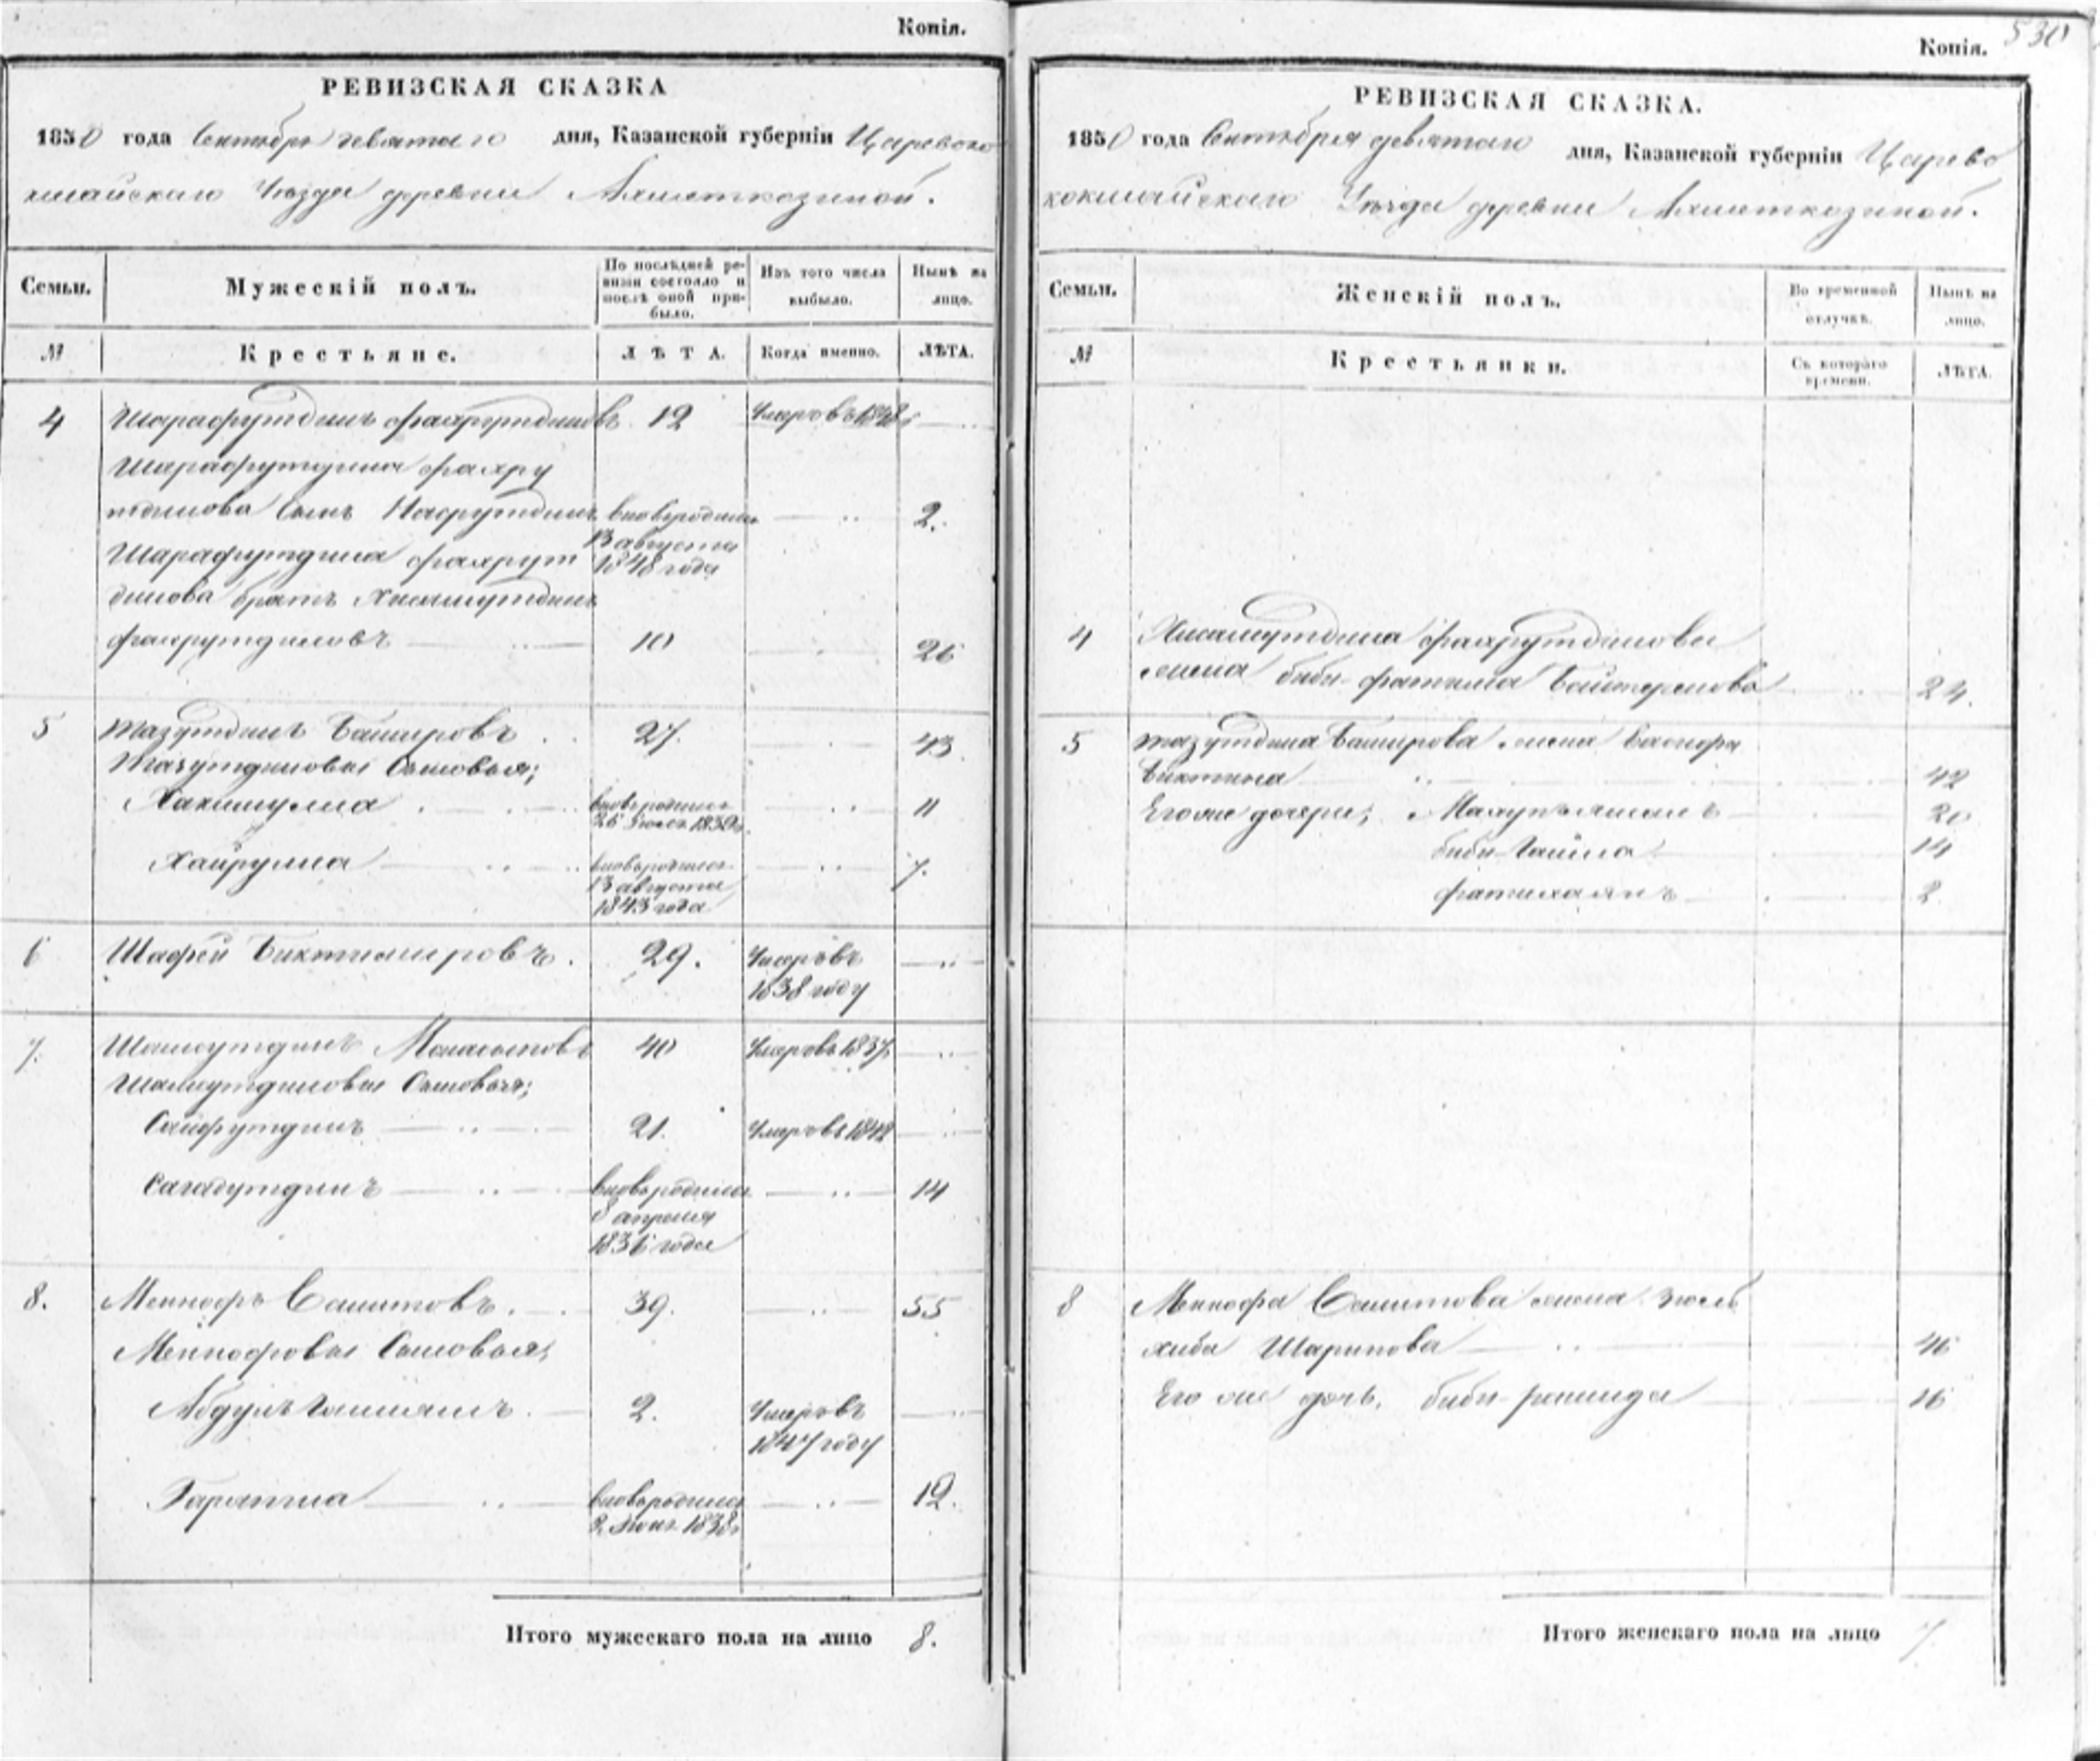 Копія.
РЕВИЗСКАЯ СКАЗКА
1850 года Сентября девятаго дня, Казанской губерніи Царевоко
кшайскаго Уѣзда деревни Ахметкозиной.
Семьи. Мужескій полъ. По послѣдней ре-визіи состояло и послѣ оной при-было. Изъ того числа выбыло. Нынѣ на лицо.
№ Крестьяне. ЛѢТА. Когда именно. ЛѢТА.
4 Шарафутдинъ Фахрутдиновъ 12 Умеръ въ 1848
Шарафутдина Фахру
тдинова сынъ Насрутдинъ вновьродилъ 2.
13 августа
Шарафутдина Фахрут 1848 года
динова братъ Хисамутдинъ
Фахрутдиновъ 10 26
5 Тазутдинъ Баширов 27. 43
Тазутдиновы Сыновья;
Хакимулла вновьродился 11
26 Июля 1839
Хайрулла вновьродился 7.
13 августа
1843 года
6 Шафей Биктимировъ. 29. Умеръ въ
1838 году
7. Шамсутдинъ 40 Умеръ въ 1837
Шамсутдиновы Сыновья;
Сайфутдинъ 21. Умеръ въ 1842
Сагадутдинъ вновьродился 14
8 апреля
1836 года
8. Меннафъ Самитовъ. 39. 55
Меннафовы Сыновья;
2. Умеръ въ
1847 году
Гарантша вновьродился 12.
2 Июня 1838
Итого мужескаго пола на лицо 8.
530
Копія.
РЕВИЗСКАЯ СКАЗКА.
1850 года Сентября девятаго дня, Казанской губерніи Царево
кокшайскаго Уѣзда деревни Ахметкозиной.
Семьи. Женскій полъ. Во временной отлучкѣ. Нынѣ на лицо.
№ Крестьянки. Съ котораго времени. ЛѢТА.
4 Хисамутдина Фахрутдинова
жена биби-Фатима 24.
5 Тазутдина Баширова жена
42
Его же дочери; 20
биби- 14
2
8 Меннафа Самитова жена Зюль
хиба Шарипова 46
Его же дочь, биби-рашида 16
Итого женскаго пола на лицо 7